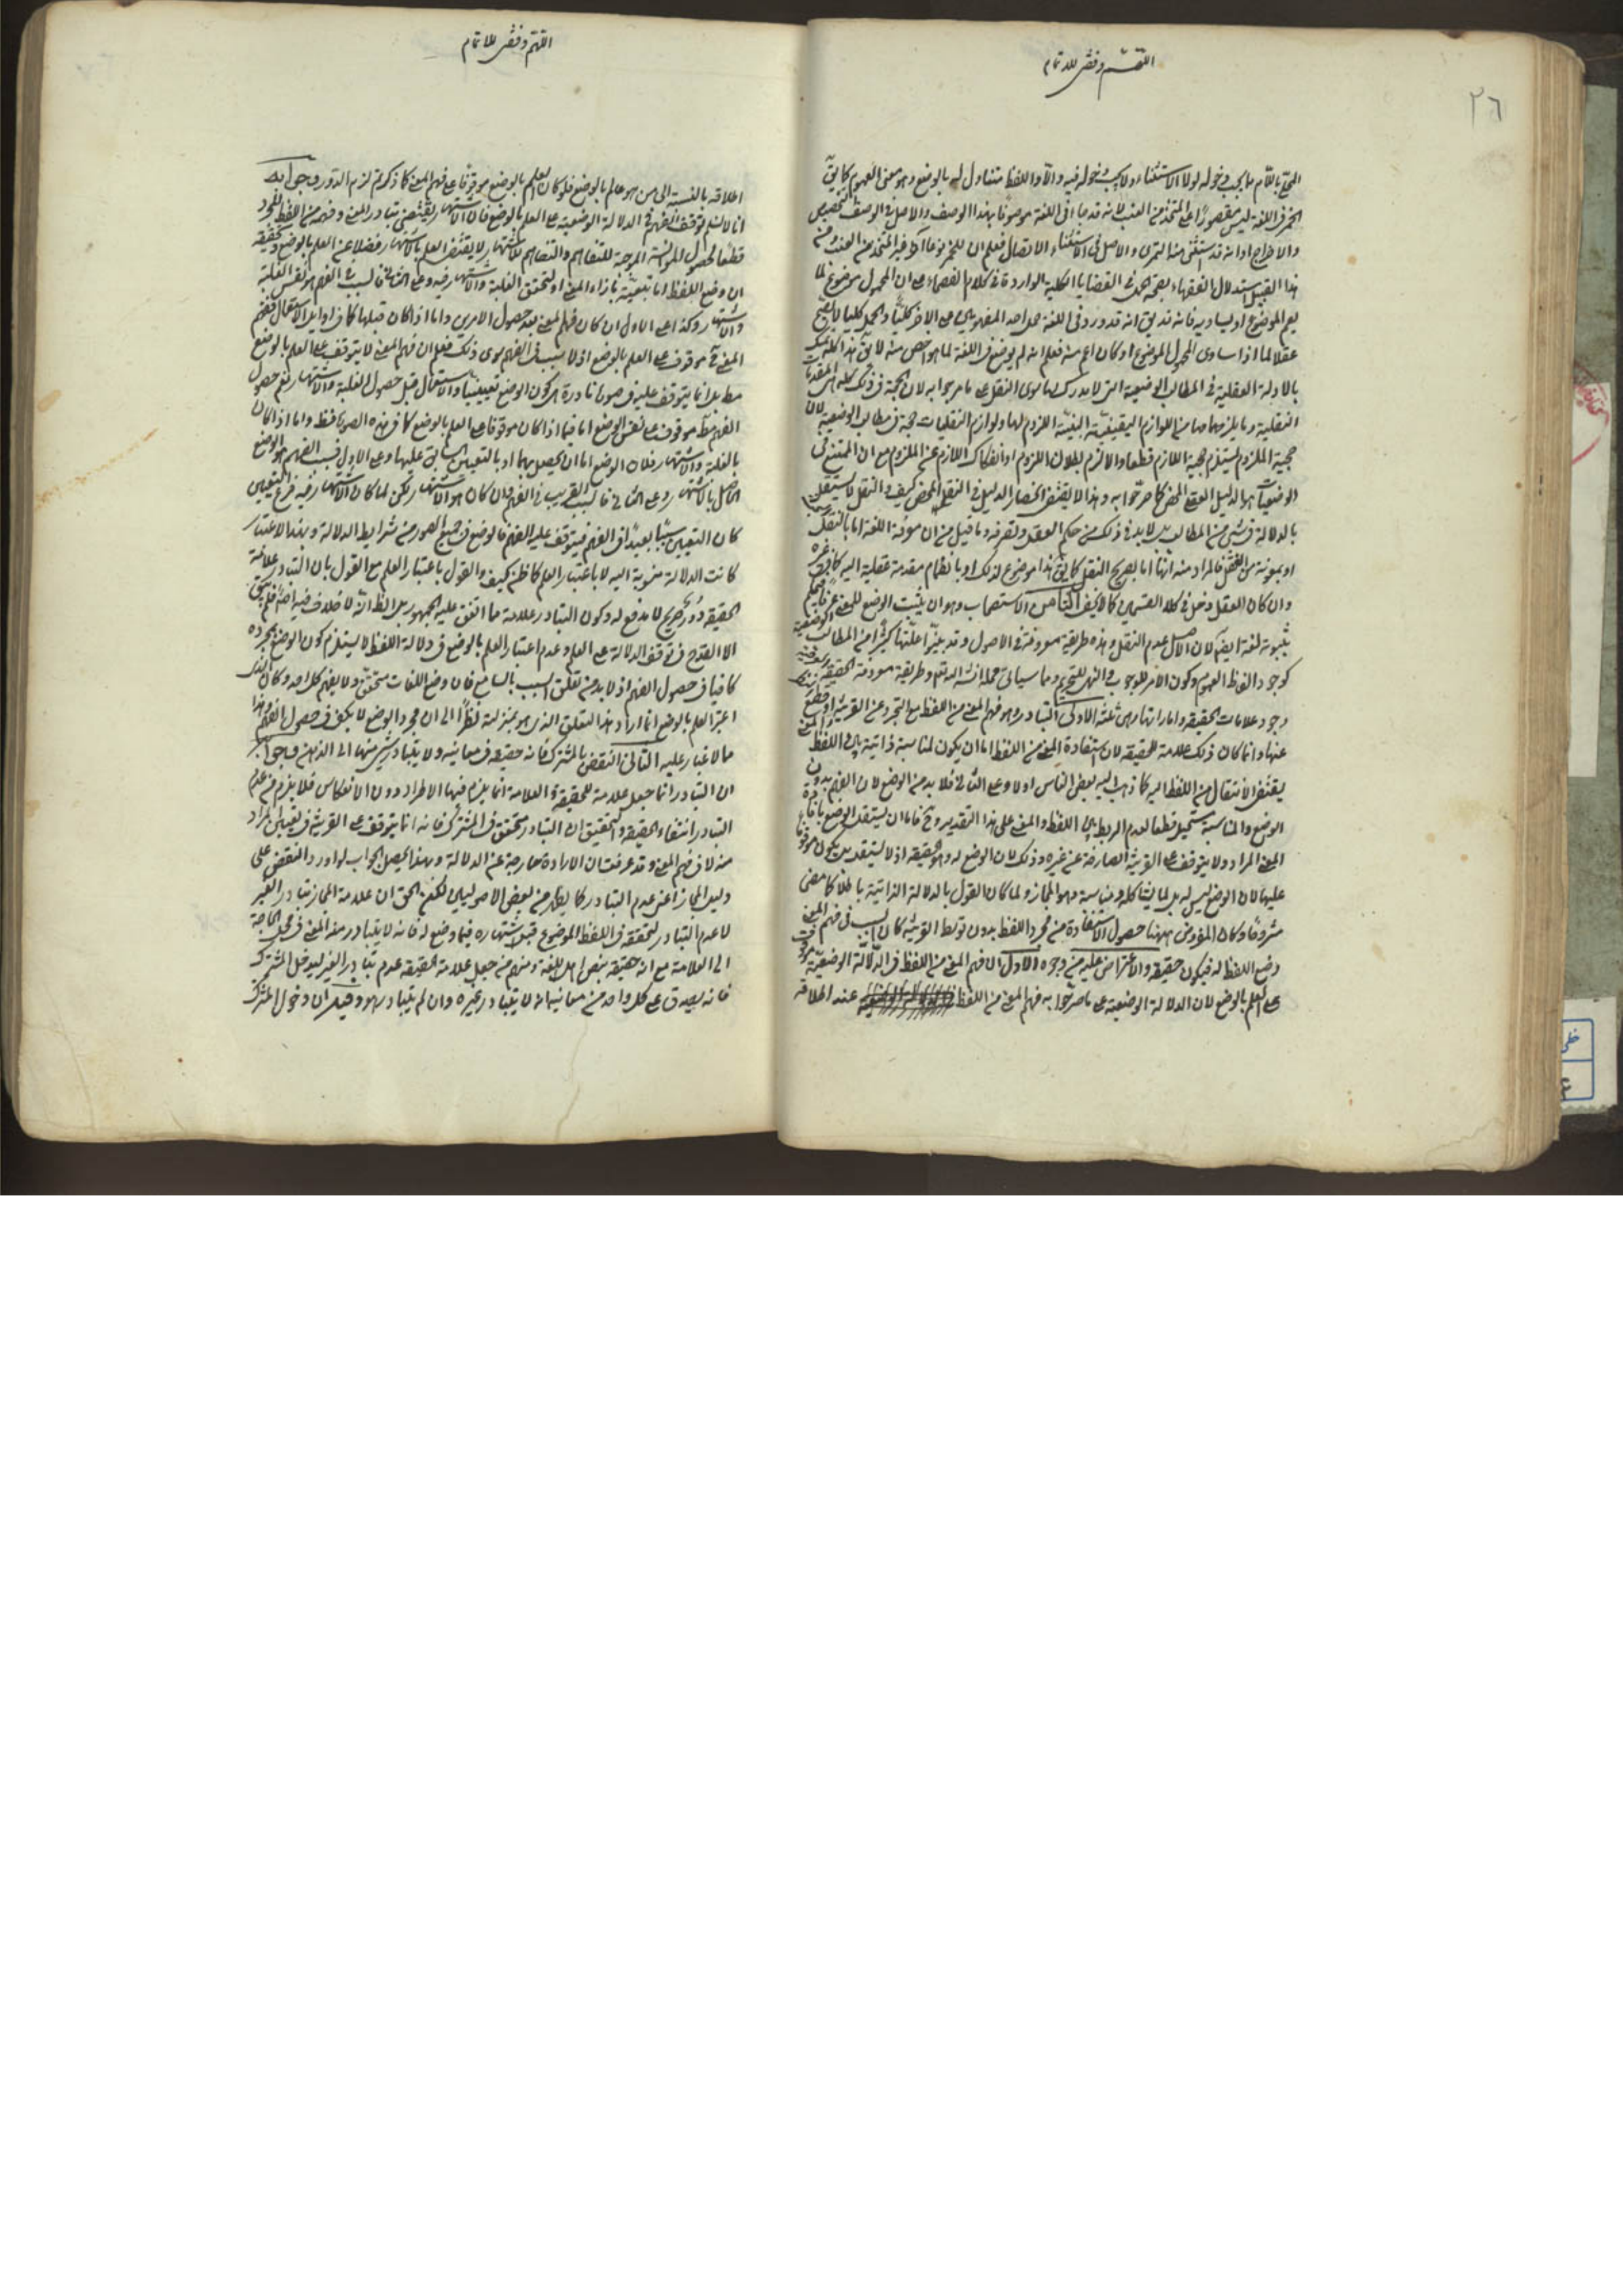 اللهم وفقني للاتمام
٢٦
المحلى باللام ما يجب دخوله لولا الاستثناء ولا يجب دخوله فيه والا واللفظ متناول له بالوضع وهو معنى العموم كما يق
الخمر في اللغة ليس مقصورا على المتخذ من العنب لانه قدما في اللغة موصوفا بهذا الوصف والاصل في الوصف التخصيص
والاخراج او انه قد استثنى منه التمرى والاصل في الاستثناء الاتصال فعلم ان للخمر نوعا آخر غير المتخذ من العنب ومن
هذا القبيل استدلال الفقهاء بصحة الحمل في القضايا الكلية الواردة في كلام الفصحاء على ان المحمول موضوع لما
يعم الموضوع او يساويه فانه قد يق انه قد ورد في اللغة حمل احد المفهومين على الاخر كليا والحمل كليا لا يصح
عقلا لما اذا ساوى المحمول الموضوع او كان اعم منه فعلم انه لم يوضع في اللغة لما هو اخص منه لا يق هذا كله تمسك
بالادلة العقلية في المطالب الوضعية التى لا مدرك لها سوى النقل على ما صرحوا به لان الحجة في ذلك كله هي المقدمات
النقلية وما يلزمها من اللوازم اليقينية البينية اللزوم لها ولوازم النقليات حجة في مطالب الوضعية لان
حجية الملزوم يستلزم حجية اللازم قطعا والا لزم بطلان اللزوم او انفكاك اللازم عن الملزوم مع ان الممتنع في
الوضعيات هو الدليل العقلي المحض كما صرحوا به وهذا لا يقتضى انحصار الدليل في النقل المحض كيف والنقل لا يستقل
بالدلالة في شئ من المطالب بل لا بد في ذلك من حكم العقل وتصرفه وما قيل من ان معرفة اللغة اما بالنقل
او بمعونة من العقل فالمراد منه انها اما بصريح النقل كما يق هذا موضوع لذلك او بانضمام مقدمة عقلية اليه كما في غيره
وان كان العقل دخل في كلا القسمين كما لا يخفى الثامن الاستصحاب وهو ان يثبت الوضع للمعنى عرفا فيحكم
بثبوته لغة ايضا لان الاصل عدم النقل وهذه طريقة معروفة في الاصول وقد بينوا عليها كثيرا من المطالب الوضعية
كوجود الفاظ العموم وكون الامر للوجوب والنهى للتحريم ومما سياتى محله انش الله تعم وطريقة معرفة الحقيقة
وجود علامات الحقيقة واماراتها وهى ثلثة الاولى التبادر وهو فهم المعنى من اللفظ مع التجرد عن القرينة او قطع
عنها وانما كان ذلك علامة للحقيقة لان استفادة المعنى من اللفظ اما ان يكون لمناسبة ذاتية بين اللفظ والمعنى
يقتضى الانتقال من اللفظ اليه كما ذهب اليه بعض الناس او لا وعلى الثانى فلا بد من الوضع لان الفهم بدون
الوضع والمناسبة مستحيل قطعا لعدم الربط بين اللفظ والمعنى على هذا التقدير وح فاما ان يستقل الوضع بافادة
المعنى المراد ولا يتوقف على القرينة الصارفة عن غيره وذلك لان الوضع له وهو الحقيقة او لا يستقل بل يكون موقوفا
عليها لان الوضع ليس له بل لما يشاكله ويناسبه وهو المجاز ولما كان القول بالدلالة الذاتية باطلا كما مضى
مشروحا وكان المفروض ههنا حصول الاستفادة من مجرد اللفظ بدون توسط القرينة كان السبب في فهم المعنى
وضع اللفظ له فيكون حقيقة والاعتراض عليه من وجوه الاول ان فهم المعنى من اللفظ في الدلالة الوضعية موقوف
على العلم بالوضع لان الدلالة الوضعية على ما صرحوا به فهم المعنى من اللفظ عند اطلاقه
اللهم وفقني للاتمام
اطلاقه بالنسبة الى من هو عالم بالوضع فلو كان العلم بالوضع موقوفا على فهم المعنى كما ذكرتم لزم الدور وجوابه
انا لا نسلم توقف الفهم في الدلالة الوضعية على العلم بالوضع فان الاشتهار يقتضى تبادر المعنى وفهمه من اللفظ المجرد
قطعا لحصول الموانسة الموجبة للتفاهم والتفاهم للاشتهار لا يقتضى العلم بالاشتهار فضلا عن العلم بالوضع وتحقيقه
ان وضع اللفظ اما بتعيينه بازاء المعنى او بتحقق الغلبة والاشتهار فيه وعلى الثانى فالسبب في الفهم هو نفس الغلبة
والاشتهار وكذا على الاول ان كان فهم المعنى بعد حصول الامرين واما اذا كان قبلها كما في اوايل الاستعمال ففهم
المعنى ح موقوف على العلم بالوضع اذ لا سبب في الفهم سوى ذلك فعلم ان فهم المعنى لا يتوقف على العلم بالوضع
مطلقا بل انما يتوقف عليه في صورة نادرة هى كون الوضع تعيينيا والاستعمال قبل حصول الغلبة والاشتهار نعم حصول
الفهم مط موقوف على نفس الوضع اما فيما اذا كان موقوفا على العلم بالوضع كما في هذه الصورة فقط واما اذا كان
بالغلبة والاشتهار فلان الوضع اما ان يحصل بهما او بالتعيين السابق عليها وعلى الاول فسبب الفهم هو الوضع
الحاصل بالاشتهار وعلى الثانى فالسبب القريب في الفهم وان كان هو الاشتهار لكن لما كان الاشتهار فيه فرع التعيين
كان التعيين سببا بعيدا في الفهم فيتوقف عليه الفهم فالوضع في جميع الصور من شرايط الدلالة وبهذا الاعتبار
كانت الدلالة منسوبة اليه لا باعتبار العلم كما ظن كيف والقول باعتبار العلم مع القول بان التبادر علامة
الحقيقة دور صريح لا مدفع له وكون التبادر علامة مما اتفق عليه الجمهور بل الظ انه لا خلاف فيه اصلا فلم يبق
الا القدح في توقف الدلالة على العلم وعدم اعتبار العلم بالوضع في دلالة اللفظ لا يستلزم كون الوضع بمجرده
كافيا في حصول الفهم اذ لا بد من تعلق السبب بالسامع فان وضع اللغات متحقق ولا يفهم كل احد وكان الذى
اعتبر العلم بالوضع انما اراد هذا التعلق الذى هو بمنزلته نظرا الى ان مجرد الوضع لا يكفى في حصول الفهم وهذا
مما لا غبار عليه الثانى النقض بالمشترك فانه حقيقة في معانيه ولا يتبادر شئ منها الى الذهن وجوابه
ان التبادر انما جعل علامة للحقيقة والعلامة انما يلزم فيها الاطراد دون الانعكاس فلا يلزم من عدم
التبادر انتفاء الحقيقة والتحقيق ان التبادر متحقق في المشترك فانه انما يتوقف على القرينة في تعيين المراد
منه لا في فهم المعنى وقد عرفت ان الارادة خارجة عن الدلالة وبهذا يحصل الجواب لو اورد النقض على
دليل المجاز اعنى عدم التبادر كما يظهر من بعض الاصوليين لكن الحق ان علامة المجاز تبادر الغير
لا عدم التبادر لتحققه في اللفظ الموضوع قبل اشتهاره فيما وضع له فانه لا يتبادر منه المعنى في محل الحاجة
الى العلامة مع انه حقيقة بنص اهل اللغة ومنهم من جعل علامة الحقيقة عدم تبادر الغير ليدخل المشترك
فانه يصدق على كل واحد من معانيه انه لا يتبادر غيره وان لم يتبادر هو وفيه ان دخول المشترك